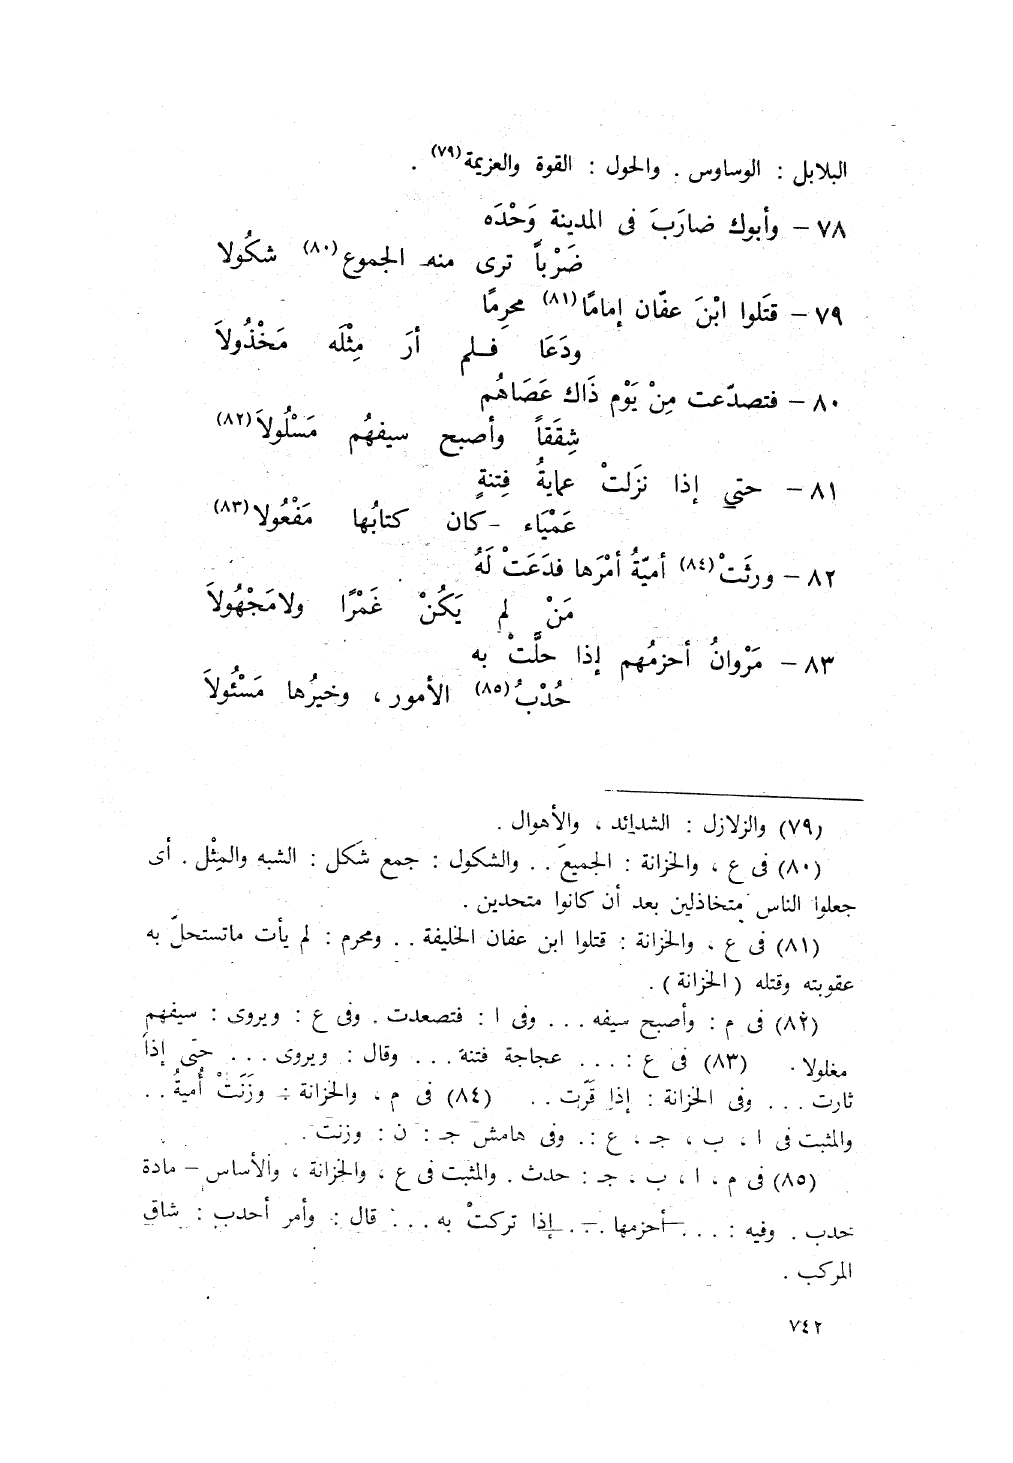 البلابل : الوساوس . والحول : القوة والعزيمة(٧٩) .
٧٨ – وأبوك ضارَبَ فى المدينة وَحْدَه
ضَرْباً ترى منه الجموع(٨٠) شكُولا
٧٩ – قتَلوا ابْنَ عفّان إمامًا(٨١) محرِمًا
ودَعَا فلم أرَ مِثْلَه مَخْذُولاَ
٨٠ – فتصدّعت مِنْ يَوْم ذَاك عَصَاهُم
شِقَقاً وأصبح سيفهُم مَسْلُولاَ(٨٢)
٨١ – حتي إذا نزَلتْ عمايةُ فِتنةٍ
عَمْيَاء - كان كتابُها مَفْعُولا(٨٣)
٨٢ – ورثَتْ(٨٤) أميّةُ أمْرَها فدَعَتْ لَهُ
مَنْ لم يَكُنْ غَمْرًا ولامَجْهُولاَ
٨٣ – مَرْوانُ أحزمُهم إذا حلَّتْ به
حُدْبُ(٨٥) الأمور ، وخيرُها مَسْئُولاَ
(٧٩) والزلازل : الشدائد ، والأهوال .
(٨٠) فى ع ، والخزانة : الجميعَ . . والشكول : جمع شكل : الشبه والمِثْل . أى
جعلوا الناس متخاذلين بعد أن كانوا متحدين .
(٨١) فى ع ، والخزانة : قتلوا ابن عفان الخليفة . . ومحرم : لم يأت ماتستحلّ به
عقوبته وقتله ( الخزانة ) .
(٨٢) فى م : وأصبح سيفه . . . وفى ا : فتصعدت . وفى ع : ويروى : سيفهم
مغلولا . (٨٣) فى ع : . . . عجاجة فتنة . . . وقال : ويروى . . . حتى إذا
ثارت . . . وفى الخزانة : إذا قَرَّت . . (٨٤) فى م ، والخزانة : وزَنَتْ أُميةُ . .
والمثبت فى ا ، ب ، جـ ، ع : . وفى هامش جـ : ن : وزنت .
(٨٥) فى م ، ا ، ب ، جـ : حدث . والمثبت فى ع ، والخزانة ، والأساس – مادة
حدب . وفيه : . . . أحزمها . . . إذا تركتْ به . . . قال : وأمر أحدب : شاق
المركب .
٧٤٢